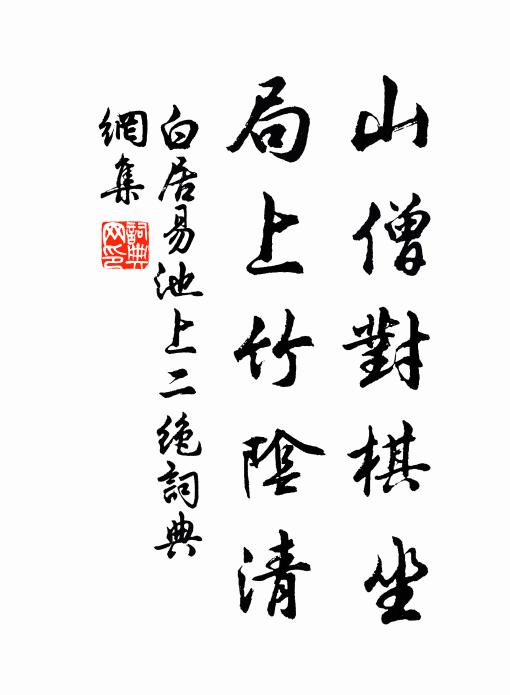 山僧對棋坐
局上竹陰清
白居易池上二絶詞典
網集
詞典
网印